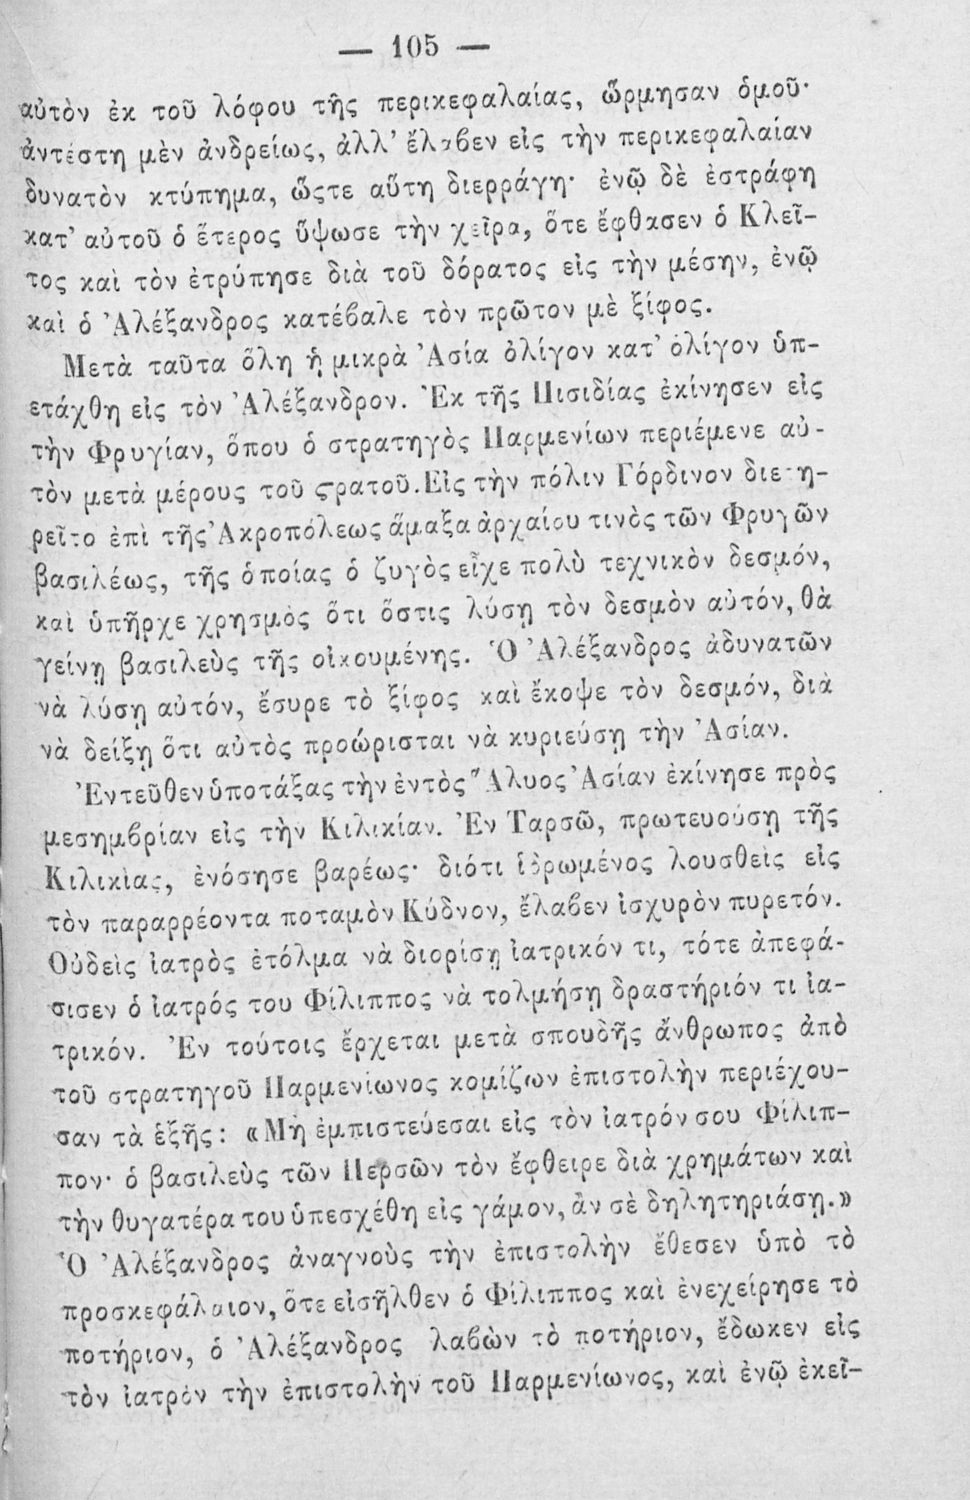 — 105 —
αὐτὸν ἐκ τοῦ λόφου τῆς περικεφαλαίας, ὥρμησαν ὁμοῦ·
ἀντέστη μὲν ἀνδρείως, ἀλλ' ἔλαβεν εἰς τὴν περικεφαλαίαν
δυνατὸν κτύπημα, ὥςτε αὕτη διερράγη· ἐνῷ δὲ ἐστράφη
κατ' αὐτοῦ ὁ ἕτερος ὕψωσε τὴν χεῖρα, ὅτε ἔφθασεν ὁ Κλεῖ-
τος καὶ τὸν ἐτρύπησε διὰ τοῦ δόρατος εἰς τὴν μέσην, ἐνῷ
καὶ ὁ Ἀλέξανδρος κατέβαλε τὸν πρῶτον μὲ ξίφος.
Μετὰ ταῦτα ὅλη ἡ μικρὰ Ἀσία ὀλίγον κατ' ὀλίγον ὑπ-
ετάχθη εἰς τὸν Ἀλέξανδρον. Ἐκ τῆς Πισιδίας ἐκίνησεν εἰς
τὴν Φρυγίαν, ὅπου ὁ στρατηγὸς Παρμενίων περιέμενε αὐ-
τὸν μετὰ μέρους τοῦ ςρατοῦ. Εἰς τὴν πόλιν Γόρδινον διετη-
ρεῖτο ἐπὶ τῆς Ἀκροπόλεως ἅμαξα ἀρχαίου τινὸς τῶν Φρυγῶν
βασιλέως, τῆς ὁποίας ὁ ζυγὸς εἶχε πολὺ τεχνικὸν δεσμόν,
καὶ ὑπῆρχε χρησμὸς ὅτι ὅστις λύσῃ τὸν δεσμὸν αὐτόν, θὰ
γείνῃ βασιλεὺς τῆς οἰκουμένης. Ὁ Ἀλέξανδρος ἀδυνατῶν
νὰ λύσῃ αὐτόν, ἔσυρε τὸ ξίφος καὶ ἔκοψε τὸν δεσμόν, διὰ
νὰ δείξῃ ὅτι αὐτὸς προώρισται νὰ κυριεύσῃ τὴν Ἀσίαν.
Ἐντεῦθεν ὑποτάξας τὴν ἐντὸς Ἅλυος Ἀσίαν ἐκίνησε πρὸς
μεσημβρίαν εἰς τὴν Κιλικίαν. Ἐν Ταρσῶ, πρωτευούσῃ τῆς
Κιλικίας, ἐνόσησε βαρέως· διότι ἱδρωμένος λουσθεὶς εἰς
τὸν παραρρέοντα ποταμὸν Κύδνον, ἔλαβεν ἰσχυρὸν πυρετόν.
Οὐδεὶς ἰατρὸς ἐτόλμα νὰ διορίσῃ ἰατρικόν τι, τότε ἀπεφά-
σισεν ὁ ἰατρός του Φίλιππος νὰ τολμήσῃ δραστήριόν τι ἰα-
τρικόν. Ἐν τούτοις ἔρχεται μετὰ σπουδῆς ἄνθρωπος ἀπὸ
τοῦ στρατηγοῦ Παρμενίωνος κομίζων ἐπιστολὴν περιέχου-
σαν τὰ ἑξῆς: «Μὴ ἐμπιστεύεσαι εἰς τὸν ἰατρόν σου Φίλιπ-
πον· ὁ βασιλεὺς τῶν Περσῶν τὸν ἔφθειρε διὰ χρημάτων καὶ
τὴν θυγατέρα του ὑπεσχέθη εἰς γάμον, ἂν σὲ δηλητηριάσῃ.»
Ὁ Ἀλέξανδρος ἀναγνοὺς τὴν ἐπιστολὴν ἔθεσεν ὑπὸ τὸ
προσκεφάλαιον, ὅτε εἰσῆλθεν ὁ Φίλιππος καὶ ἐνεχείρησε τὸ
ποτήριον, ὁ Ἀλέξανδρος λαβὼν τὸ ποτήριον, ἔδωκεν εἰς
τὸν ἰατρὸν τὴν ἐπιστολὴν τοῦ Παρμενίωνος, καὶ ἐνῷ ἐκεῖ-